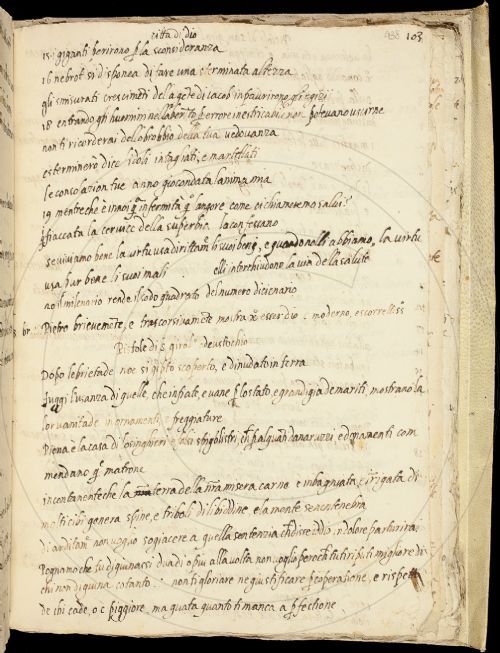 città di dio
103
15 i giganti perirono p la sconsideranza
16 nebrot si disponea di fare una sterminata altezza
gli smisurati crescimēti dela gēte di iacob inpaurirono gli egizi
18 entrando gli huomini nel laberīto errore potevano uscirne
non ti ricorderai del obbrobbio della tua vedovanza
esterminerò dice idoli intagliati, e
le consolazion tue anno giocondata lanima mia
19 mentre che è in noi q infermità q langore come ci chiameremo salui?
fiaccata la cervice della superbia la confessano
se viviamo bene la virtu usa dirittam li suoi beni, e quando noll abbiamo, la virtu
usa pur bene li suoi mali elli interchiudono la via della salute
no il milenario rende il sodo quadrato del numero dicenario
br. Pietro brievemēte, e trascorsivamēte mostra esser dio moderno,
Pistole di S giro eustochio
Dopo lebrietade noe si scoperto, e dinudato in terra
Fuggi lusanza di quelle, che infiate, e vane p lo stato, e grandigia de mariti, mostrano la
lor vanitade in ornamenti e freggiature
Piena è la casa di losinghieri e così spigolistri, ch p alquanti danaruzzi, ed ornamenti com
mendano q matrone
incontanente che la terra della misera carne e inbagnata e rrigata di
molti cibi genera spine, e triboli di libiddine e la mente se ne intenebra
di auditam non voglio sogiacere a quella sentenzia ch disse iddio, in dolore parturirai
Pognamo che tu digiunassi dua dì o piu alla volta non voglio perochē tu ti riputi migliore di
chi non digiuna cotanto non ti gloriare ne giustificare p coperazione, e rispetto
de chi cade, o è piggiore, ma guata quanto ti manca a pfectione